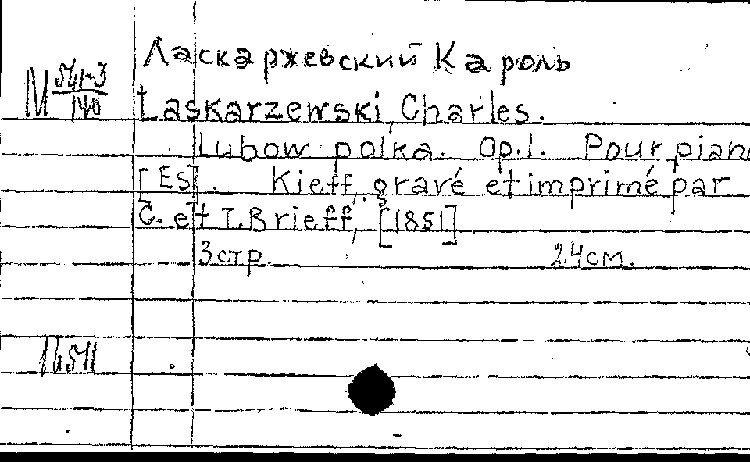 Ласкаржевский Кароль
М 541-3/140
Łaskarzewski, Charles.
Lubow polka. Op.1. Pour pian
[Es]. Kieff, gravé et imprimé par
et I. Brieff, [1851]
3 стр. 24 см.